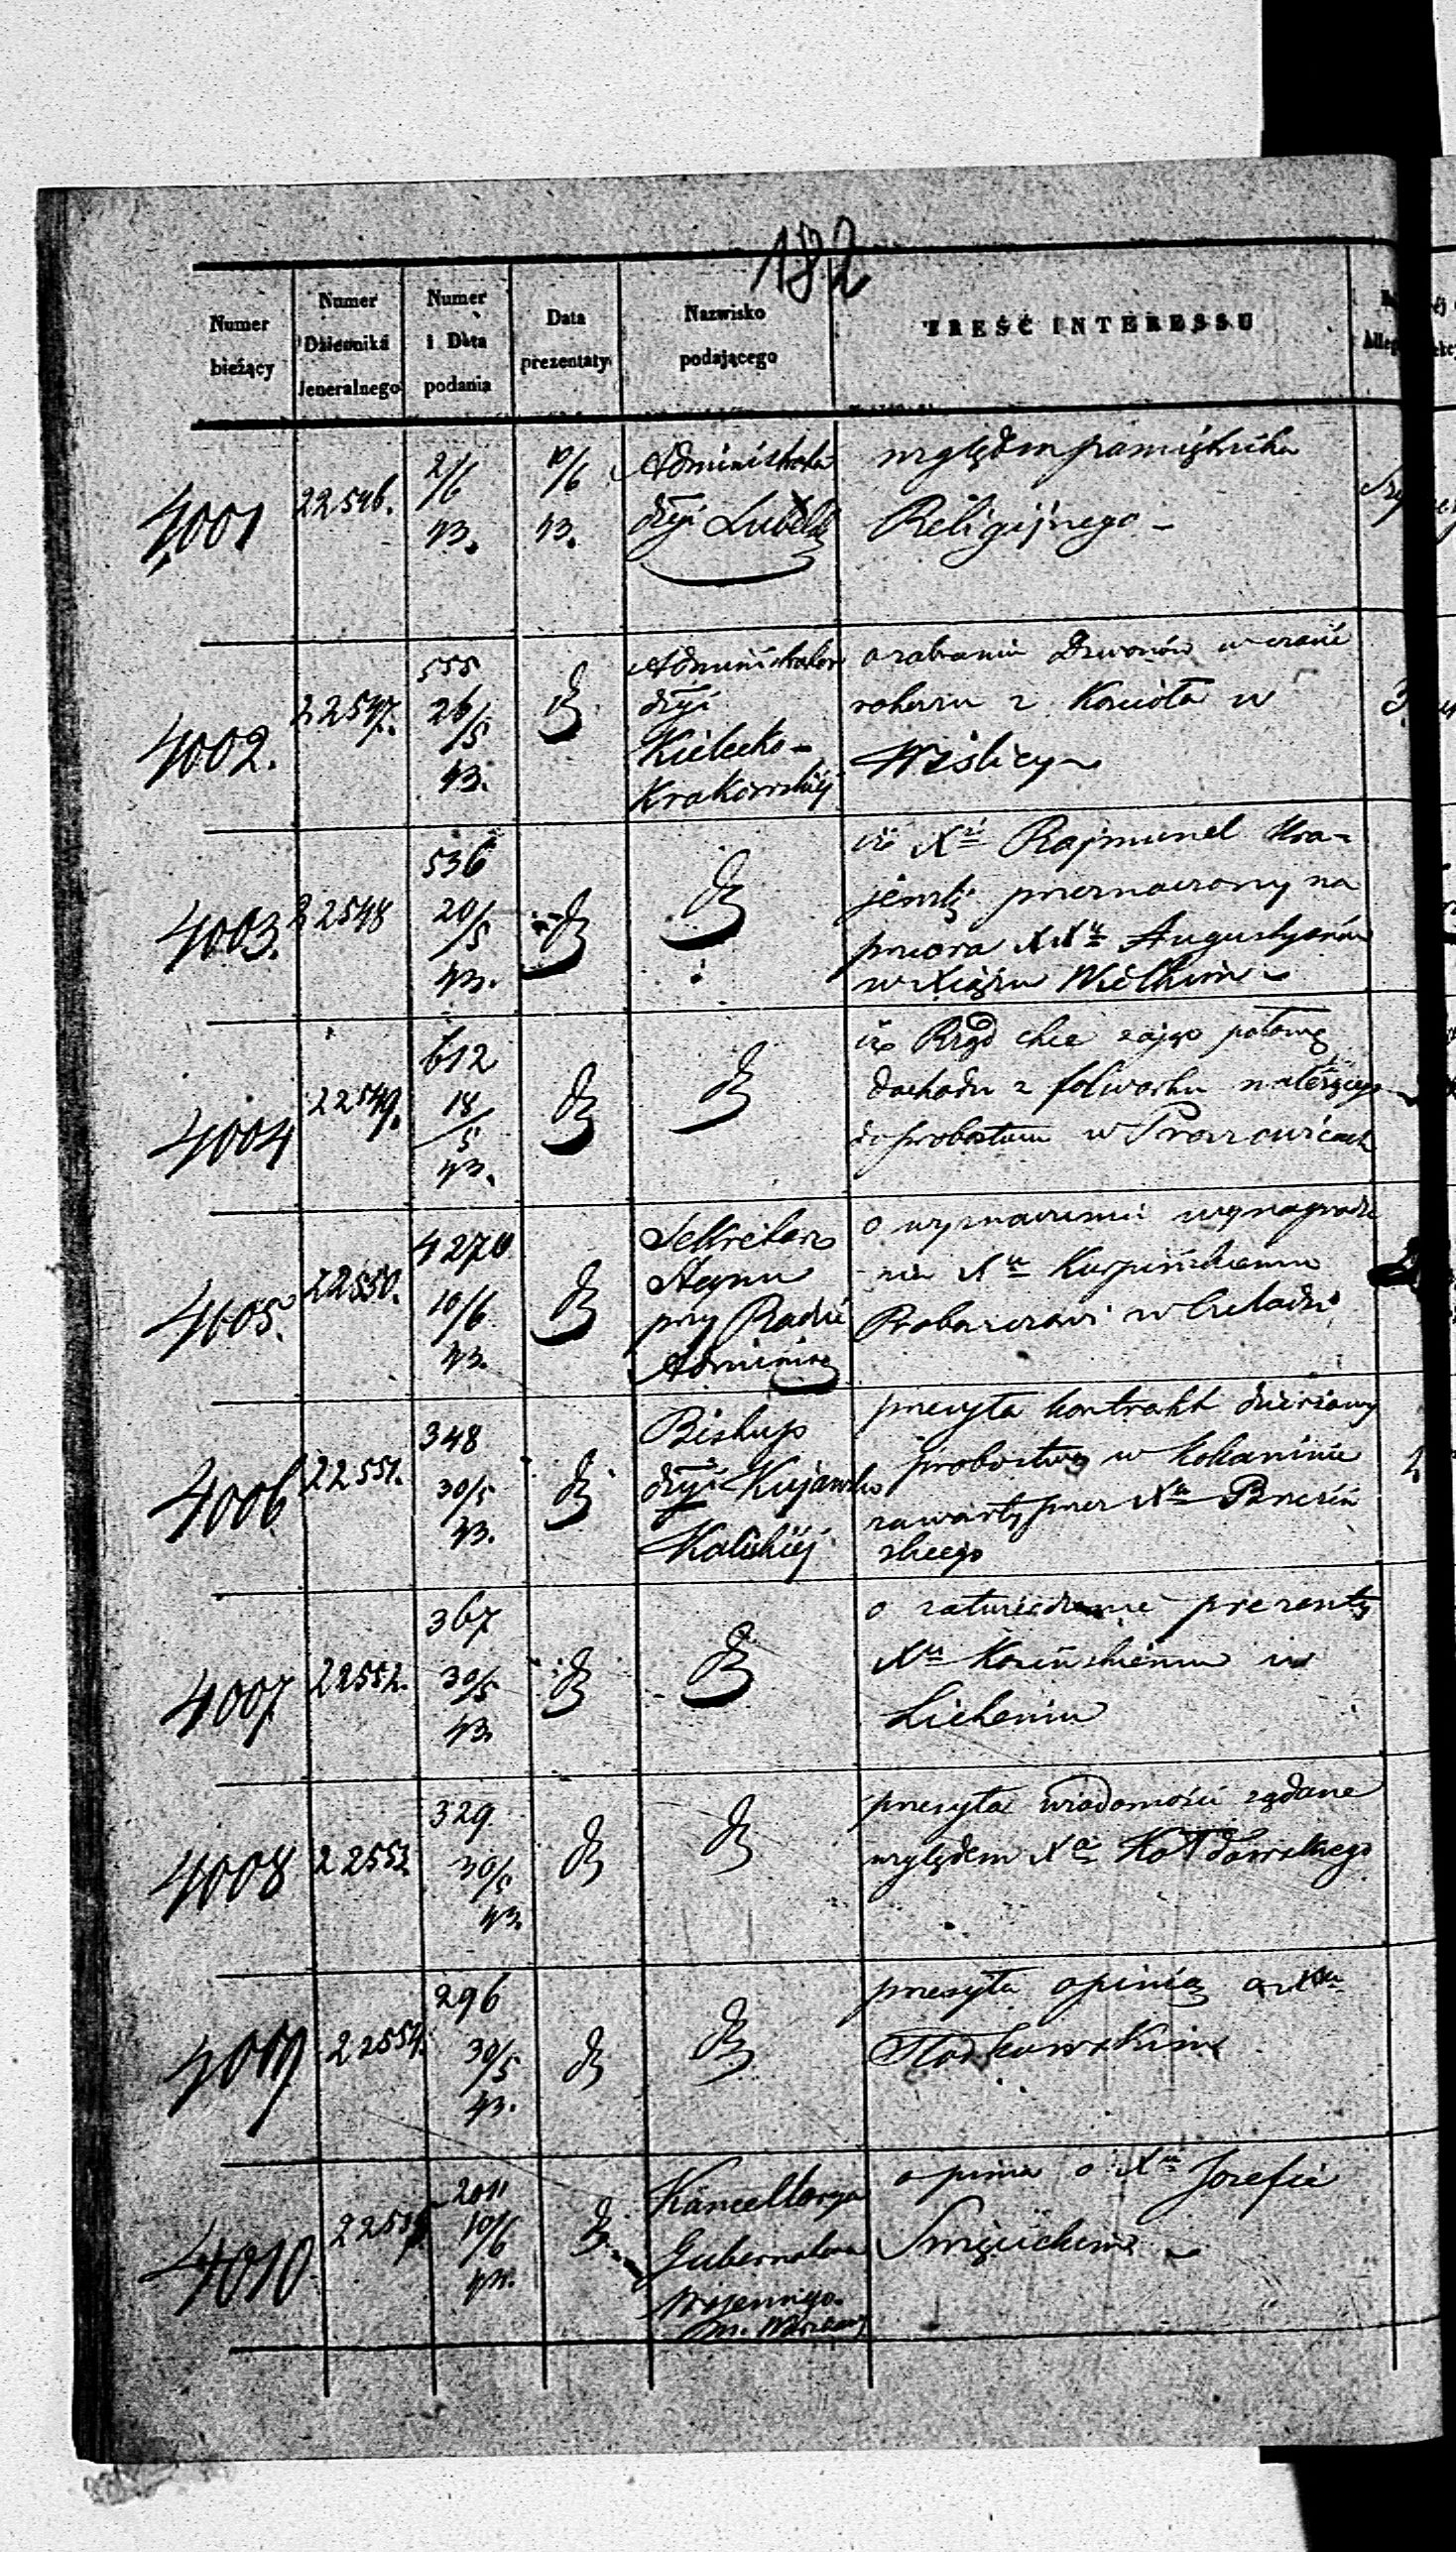 182
Numer bieżący
Numer Dziennika Jeneralnego
Numer i Data podania
Data prezentaty
Nazwisko podającego
TREŚĆ INTERESSU
4001 22546. 2/6 43. 10/6 43.
dyji Lubels
względem pamiętnika
Religijnego —
4002. 22547. 555 26/5 43.
Administrator
dyji
Kielecko-
Krakowskiej
o zabraniu Dzwonów w czasie
z Kościoła w
Wiślicy
4003. 22548 536 20/5 43.
iż X Rajmund
przeznaczony na
przeora XX Augustyanów
w Xiążu Wielkim
4004 22549. 612 18/5 43.
iż Rząd chce zająć połowę
dochodu z folwarku należącego
do probostwa w Proszowicach
4005. 22550. 4270 10/6 43.
Sekretarz
Stanu
przy Radzie
Adminis
o wyznaczenie wynagrodze
nia X Karpińskiemu
Proboszczowi w Czeladzi
4006 22551. 348 30/5 43.
Biskup
dyji Kujawsko
Kaliskiej
przesyła kontrakt dzierżawy
probostwa w Kokaninie
zawarty przez X
skiego
4007 22552. 367 30/5 43.
o zatwierdzenie prezenty
X Kosińskiemu w
Licheniu
4008 22553 329 30/5 43.
przesyła wiadomości żądane
względem X Kołdowskiego
4009 22554. 296 30/5 43.
przesyła opinią o X
4010 2011 10/6 43.
Kancellarya
Gubernatora
Wojennego
m. Warszawy
opinia o X Józefie